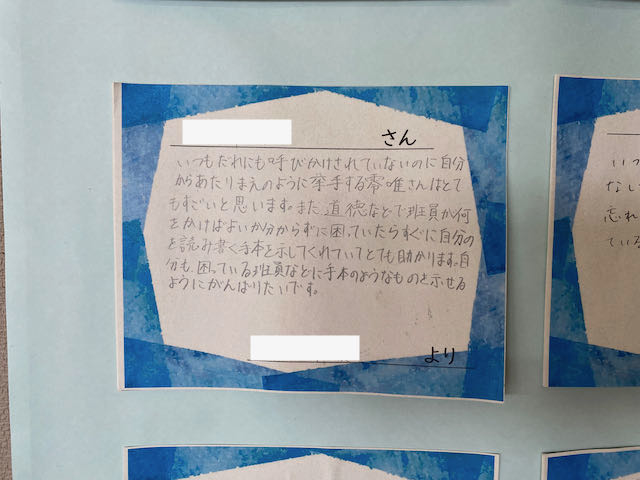 さん
いつもだれにも呼びかけされていないのに自分
からあたりまえのように挙手する零唯さんはとて
もすごいと思います。また、道徳などで班員が何
をかけばよいか分からずに困っていたらすぐに自分の
を読み書く手本を示してくれていてとても助かります。自
分も、困っている班員などに手本のようなものを示せる
ようにがんばりたいです。
より
いつ
なし
忘れ
ている